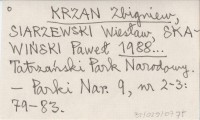 KRZAN Zbigniew,
SIARZEWSKI Wiesław, SKA-
WIŃSKI Paweł 1988...
Tatrzański Park Narodowy.
– Parki Nar. 9, nr 2-3:
79-83.